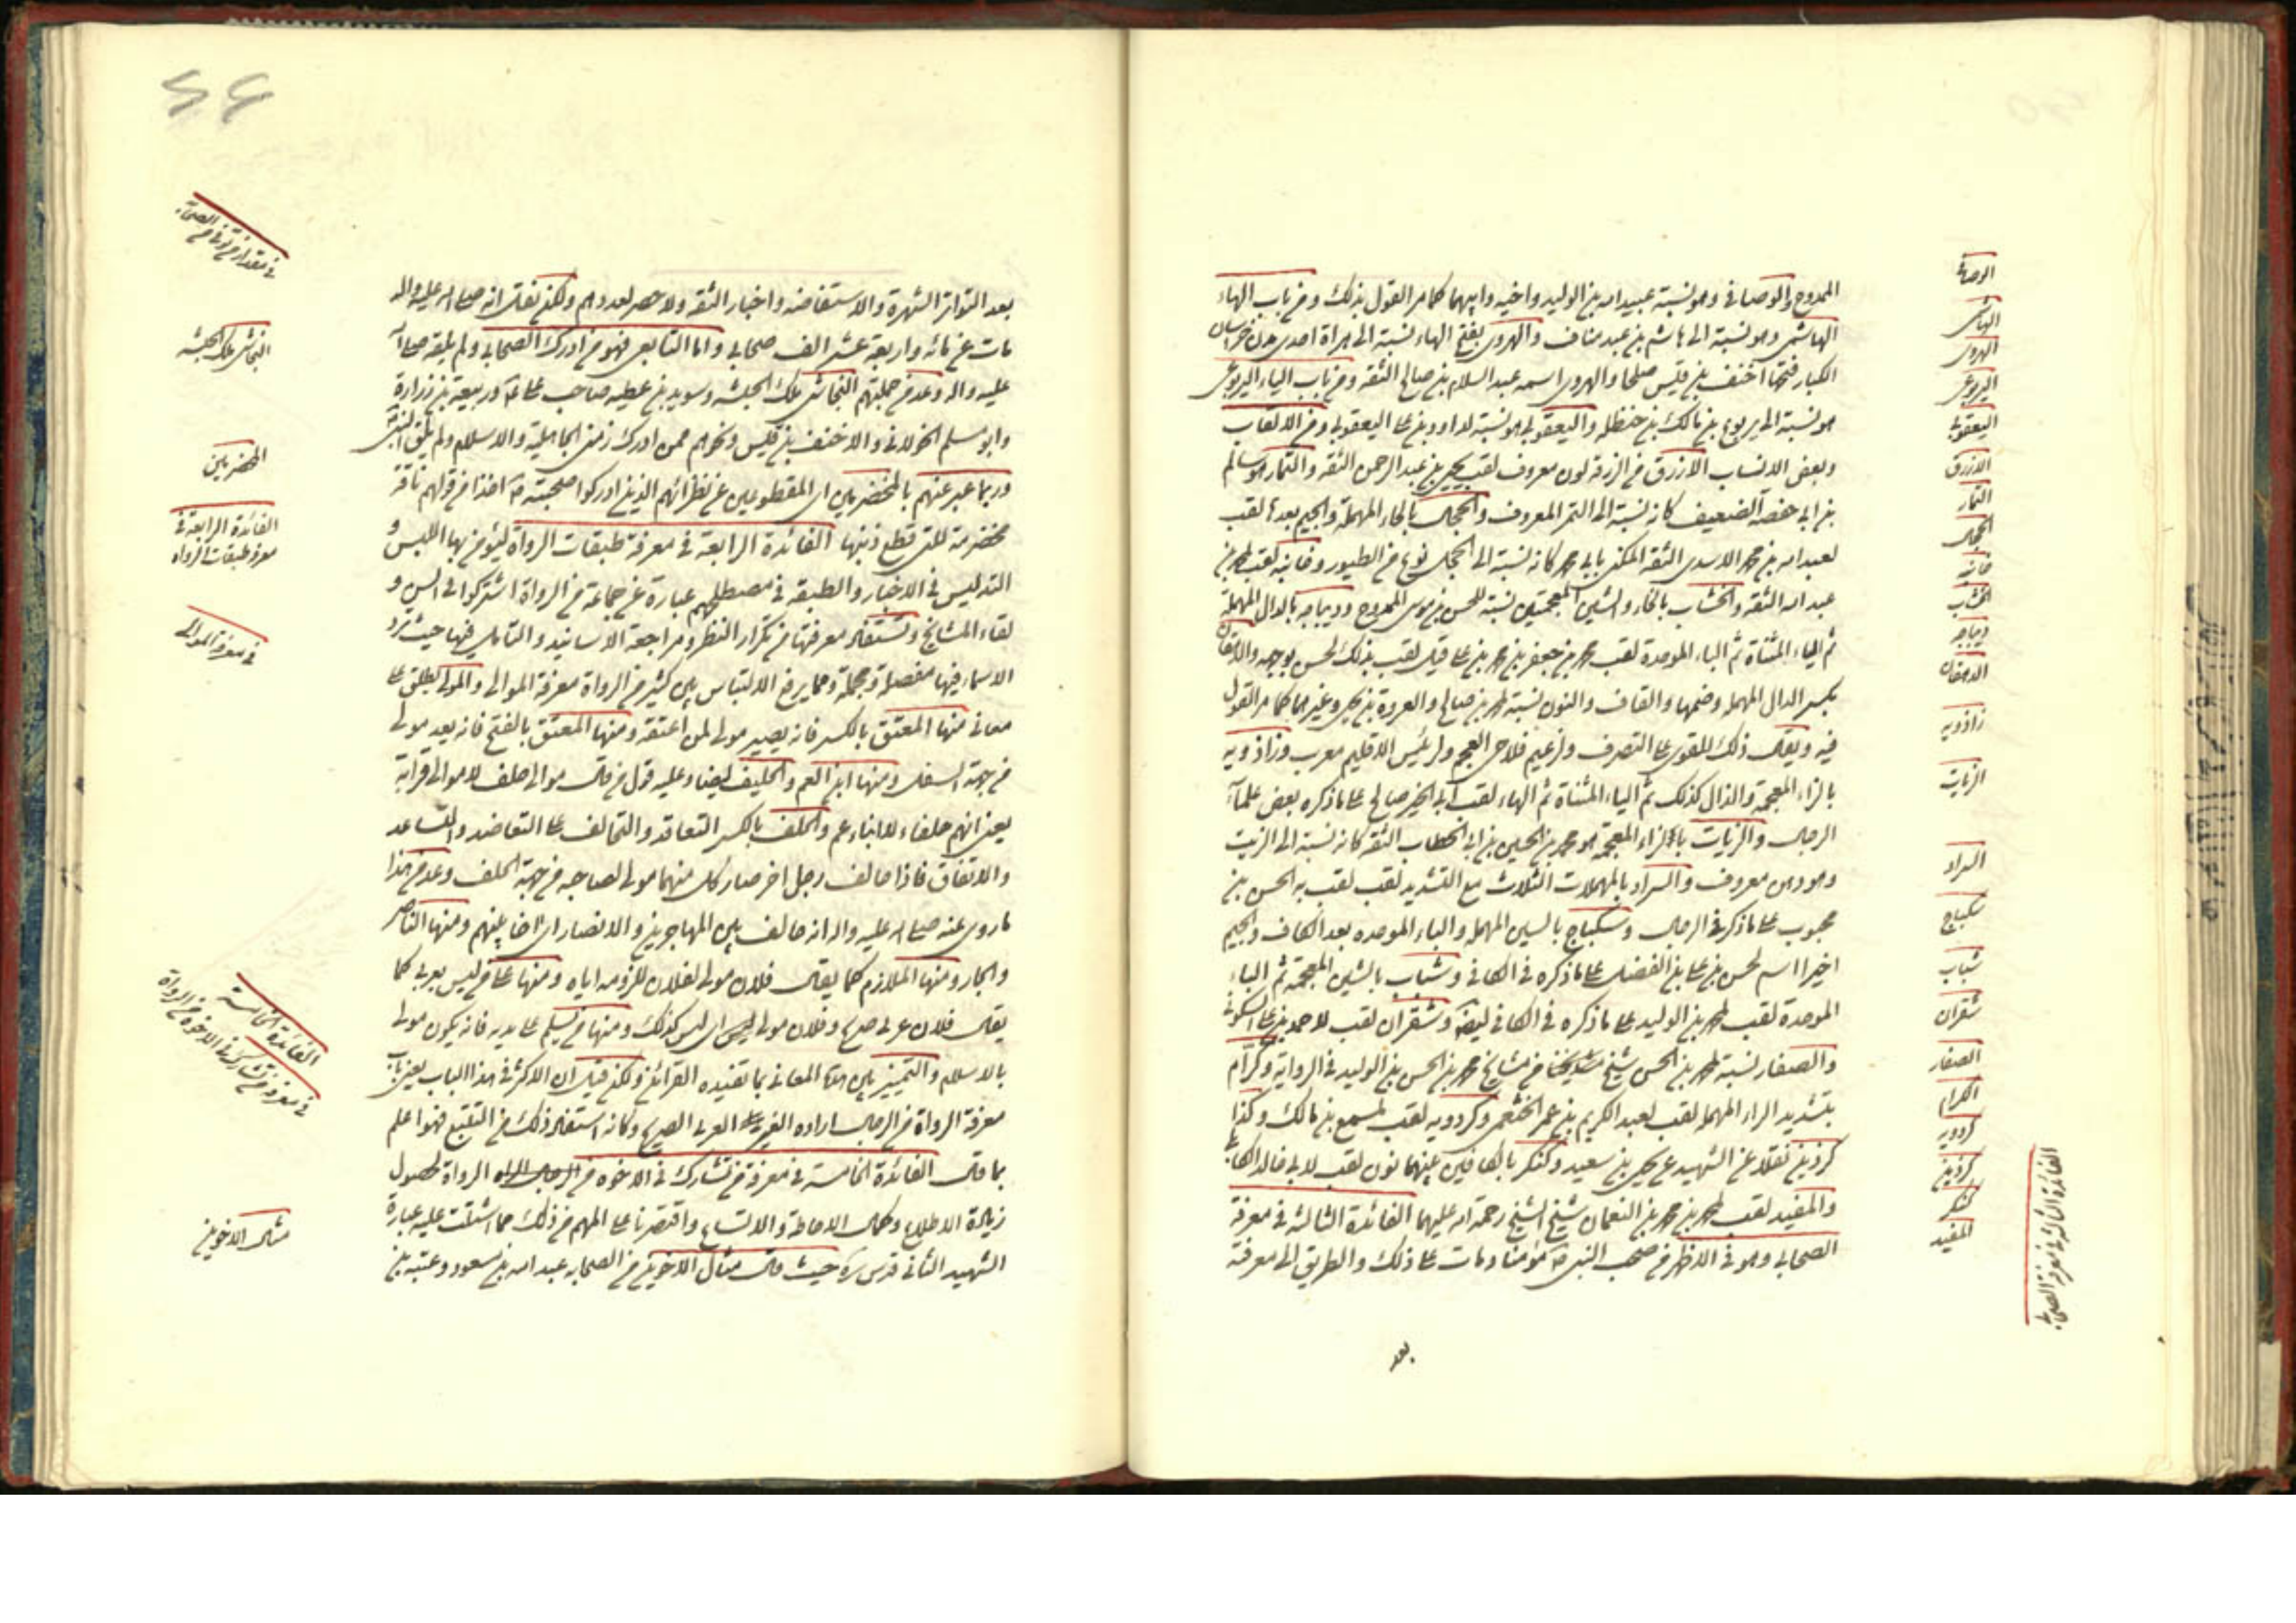 الممدوح والوصافي وهو نسبة عبيد الله بن الوليد واخيه وابيهما كما مر القول بذلك ومن باب الهاء
الهاشمي وهو نسبة الى هاشم بن عبد مناف والهروي بفتح الهاء نسبة الى هراة احدى مدن خراسان
الكبار فتحها احنف بن قيس صلحا والهروي اسمه عبد السلام بن صالح الثقه ومن باب الياء اليربوعي
هو نسبة الى يربوع بن مالك بن حنظله واليعقوبي هو نسبة لداود بن علي اليعقوبي ومن الالقاب
وبعض الانساب الازرق من الزرقة لون معروف لقب يحيى بن عبد الرحمن الثقه والتمار هو سالم
بن ابي حفصه الضعيف كانه نسبة الى التمر المعروف والحجال بالحاء المهملة والجيم بعدها لقب
لعبد الله بن محمد الاسدي الثقه المكنى بابي محمد كانه نسبة الى الحجل نوع من الطيور وخانبه لقب محمد بن
عبد الله الثقه والخشاب بالخاء والشين المعجمتين نسبة للحسن بن موسى الممدوح وديباجه بالدال المهملة
ثم الياء المثناة ثم الباء الموحدة لقب محمد بن جعفر بن محمد بن علي قيل لقب بذلك لحسن وجهه والدهقان
بكسر الدال المهمله وضمها والقاف والنون نسبة محمد بن صالح والعروة بن يحيى وغيرهما كما مر القول
فيه ويقال ذلك للقوي على التصرف ولزعيم فلاحي العجم ولرئيس الاقليم معرب وزاذويه
بالزاء المعجمة والذال كذلك ثم الياء المثناة ثم الهاء لقب ابي الخير صالح على ما ذكره بعض علماء
الرجال والزيات بالزاء المعجمة هو محمد بن الحسين بن ابي الخطاب الثقه كانه نسبة الى الزيت
وهو دهن معروف والسراد بالمهملات الثلاث مع التشديد لقب لقب به الحسن بن
محبوب على ما ذكر في الرجال وسكباج بالسين المهمله والباء الموحده بعد الكاف والجيم
اخيرا اسم لحسن بن علي بن الفضل على ما ذكره في الكافي وشباب بالشين المعجمة ثم الباء
الموحدة لقب محمد بن الوليد على ما ذكره في الكافي ايضا وشقران لقب لاحمد بن علي السكوني
والصفار نسبة محمد بن الحسن شيخ من مشايخ محمد بن الحسن بن الوليد في الرواية وكرام
بتشديد الراء المهمله لقب لعبد الكريم بن عمر الخثعمي وكردويه لقب لمسمع بن مالك وكذا
كردين نقلا عن الشهيد عن يحيى بن سعيد وكنكر بالكافين بينهما نون لقب لابي خالد الكابلي
والمفيد لقب محمد بن محمد بن النعمان شيخ الشيخ رحمة الله عليهما الفائدة الثالثة في معرفة
الصحابي وهو في الاظهر من صحب النبي ص مؤمنا ومات على ذلك والطريق الى معرفته
بعد
الوصافي
الهاشمي
الهروي
اليربوعي
اليعقوبي
الازرق
التمار
الحجال
خانبه
الخشاب
ديباجه
الدهقان
زاذويه
الزيات
السراد
سكباج
شباب
شقران
الصفار
الكرام
كردويه
كردين
كنكر
المفيد
الفائدة الثالثة في معرفة الصحابي
بعد التواتر الشهرة والاستفاضه واخبار الثقه ولا حصر لعددهم ولكن نقل انه صلى الله عليه واله
مات عن مائه واربعة عشر الف صحابي واما التابعي فهو من ادرك الصحابي ولم يلقه صلى الله
عليه واله وعد من جملتهم النجاشي ملك الحبشه وسويد بن عطيه صاحب علي وربيعة بن زرارة
وابو مسلم الخولاني والاحنف بن قيس ونحوهم ممن ادرك زمن الجاهلية والاسلام ولم يلق النبي
وربما عبر عنهم بالمخضرمين اي المقطوعين عن نظرائهم الذين ادركوا صحبته ص اخذا من قولهم ناقة
مخضرمة للتي قطع ذنبها الفائدة الرابعة في معرفة طبقات الرواة ليؤمن بها اللبس و
التدليس في الاخبار والطبقه في مصطلحهم عبارة عن جماعة من الرواة اشتركوا في السن و
لقاء المشايخ وتستفاد معرفتها من تكرار النظر ومراجعة الاسانيد والتامل فيها حيث ترد
الاسماء فيها مفصلة ومجملة ومما يرفع الالتباس بين كثير من الرواة معرفة الموالي والمولى يطلق على
معاني منها المعتق بالكسر فانه يصير مولى لمن اعتقه ومنها المعتق بالفتح فانه يعد مولى
من جهة السفل ومنها ابن العم والحليف ايضا وعليه قول من قال موالي حلف لا موالي قرابة
يعني انهم حلفاء لا ابناء عم والحلف بالكسر التعاقد والتحالف على التعاضد والتساعد
والاتفاق فاذا حالف رجل اخر صار كل منهما مولى لصاحبه من جهة الحلف وعد من هذا
ما روي عنه صلى الله عليه واله انه حالف بين المهاجرين والانصار اي اخا بينهم ومنها الناصر
والجار ومنها الملازم كما يقال فلان مولى لفلان للزومه اياه ومنها من ليس بعربي كما
يقال فلان عربي صريح وفلان مولى اي ليس كذلك ومنها من يسلم على يديه فانه يكون مولى
بالاسلام والتمييز بين هذه المعاني بما تفيده القرائن ولكن قيل ان الاكثر في هذا الباب يعني باب
معرفة الرواة من الرجال اراده الغير العربي الصريح وكانه استفاد ذلك من التتبع فهو اعلم
بما قال الفائدة الخامسة في معرفة من تشارك في الاخوه من الرواة لحصول
زيادة الاطلاع وكمال الاحاطة والاتساع واقتصرنا على المهم من ذلك مما اشتملت عليه عبارة
الشهيد الثاني قدس سره حيث قال مثال الاخوين من الصحابه عبد الله بن مسعود وعتبه بن
في مقدار من توفي من الصحابة
النجاشي ملك الحبشه
المخضرمين
الفائدة الرابعة في
معرفة طبقات الرواه
في معرفة الموالي
الفائدة الخامسة
في معرفة من تشارك في الاخوة من الرواة
مثال الاخوين